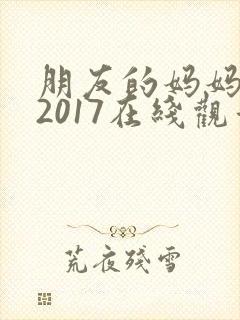 朋友的妈妈
2017在綫觀
荒夜殘雪